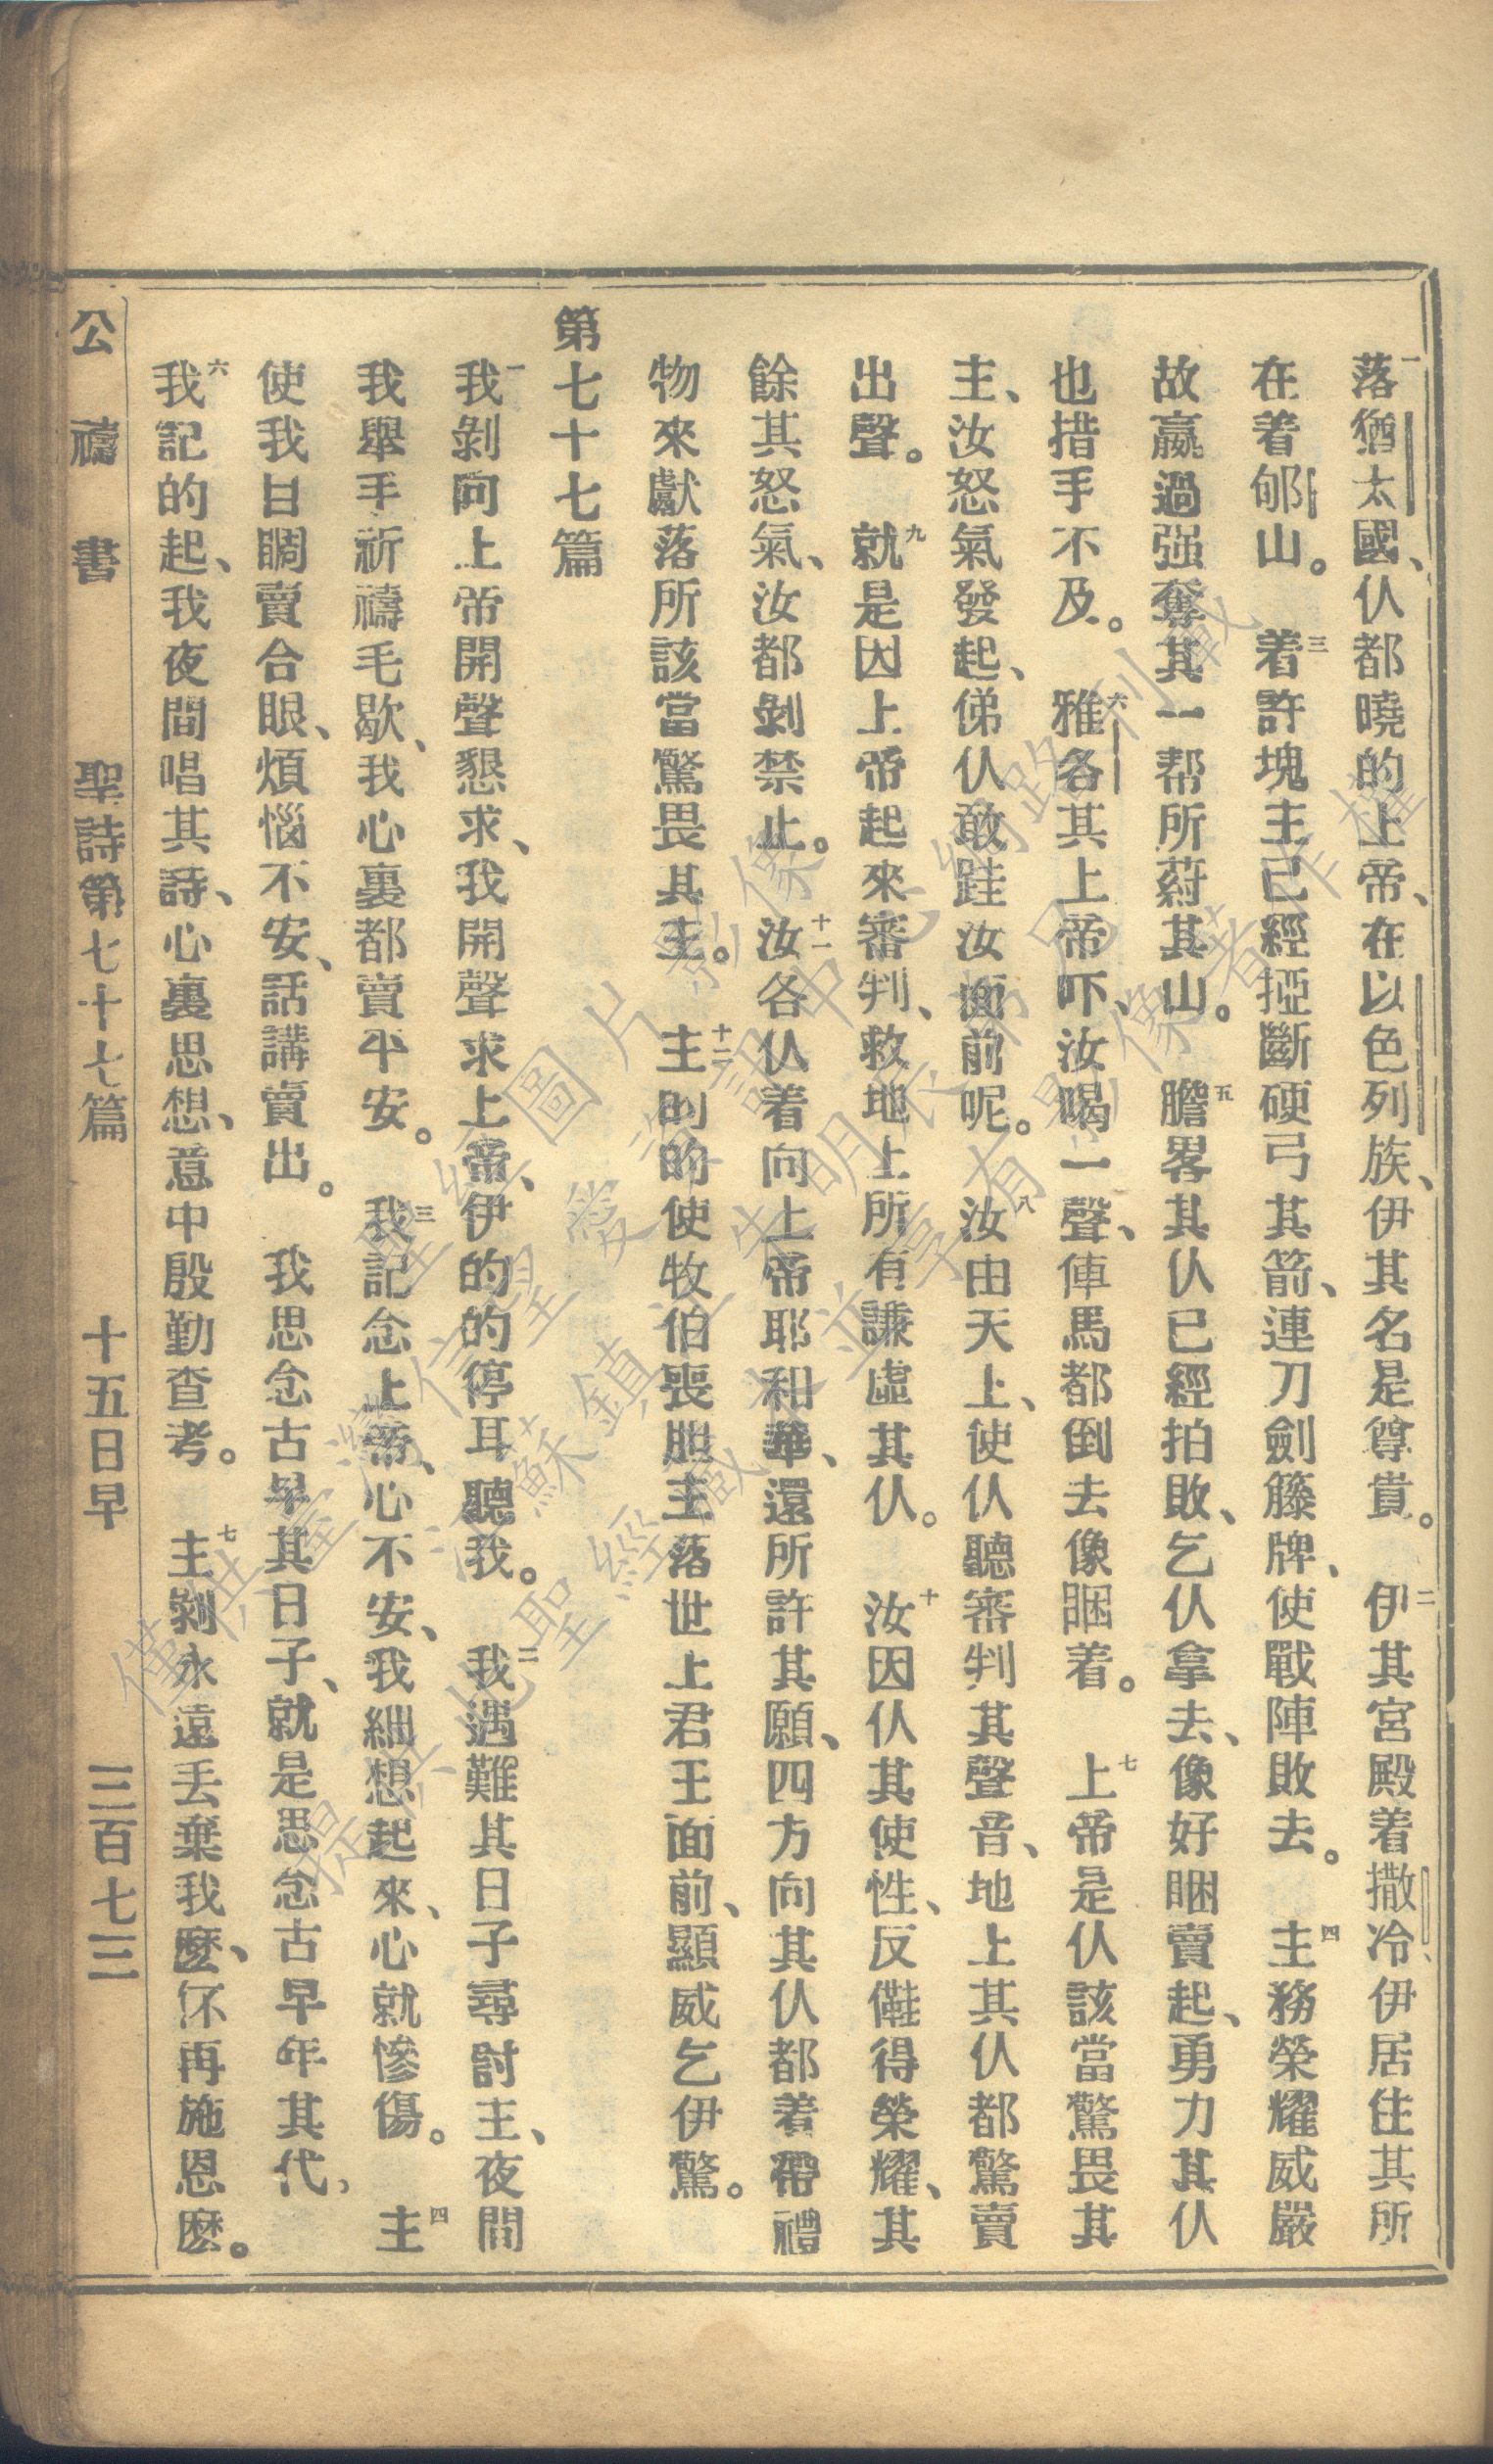 一落猶太國、仈都曉的上帝、在以色列族、伊其名是尊貴。二伊其宮殿着撒冷、伊居住其所
在着郇山。三着許塊主已經挜斷硬弓其箭、連刀劍籐牌、使戰陣敗去。四主務榮耀威嚴
故嬴過强奪其一帮所蔚其山。五膽畧其仈已經拍敗、乞仈拿去、像好睏賣起、勇力其仈
也措手不及。六雅各其上帝吓、汝喝一聲、俥馬都倒去像睏着。七上帝是仈該當驚畏其
主、汝怒氣發起、俤仈敢跬汝面前呢。八汝由天上、使仈聽審判其聲音、地上其仈都驚賣
出聲。九就是因上帝起來審判、救地上所有謙虛其仈。十汝因仈其使性、反儺得榮耀、其
餘其怒氣、汝都剝禁止。十一汝各仈着向上帝耶和華、還所許其願、四方向其仈都着帶禮
物來獻落所該當驚畏其主。十二主的的使牧伯喪胆、主落世上君王面前、顯威乞伊驚。
第七十七篇
一我剝向上帝開聲懇求、我開聲求上帝、伊的的停耳聽我。二我遇難其日子尋討主、夜間
我舉手祈禱毛歇、我心裏都賣平安。三我記念上帝、心不安、我細想起來、心就慘傷。四主
使我目睭賣合眼、煩惱不安、話講賣出。我思念古早其日子、就是思念古早年其代、
六我記的起、我夜間唱其詩、心裏思想、意中殷勤查考。七主剝永遠丟棄我麽、伓再施恩麽。
公禱書 聖詩第七十七篇 十五日早 三百七三